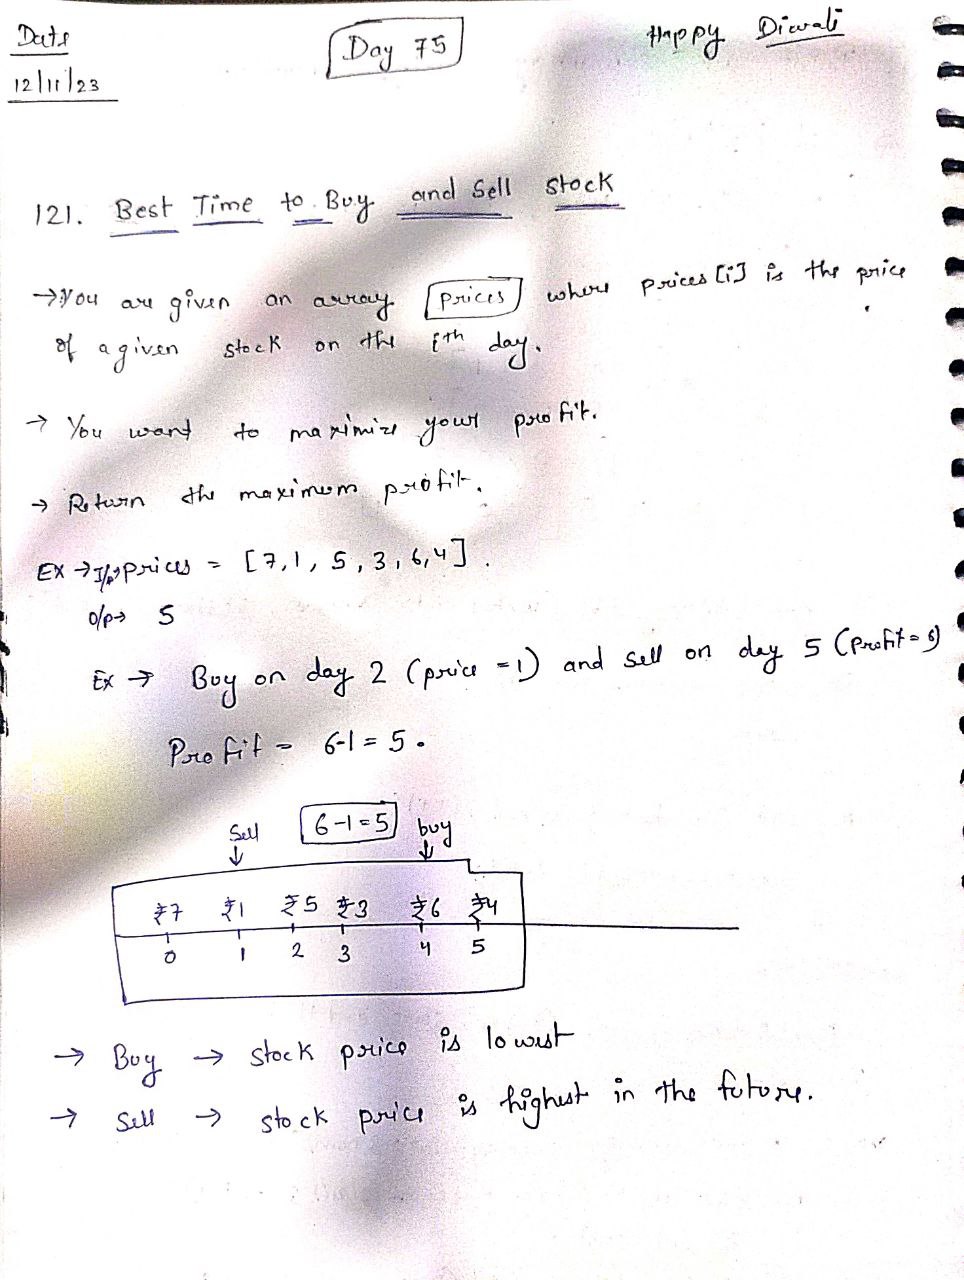 Date
12/11/23
Day 75
Happy Diwali
121. Best Time to Buy and Sell Stock
→ You are given an array prices where prices[i] is the price
of a given stock on the ith day.
→ You want to maximize your profit.
→ Return the maximum profit.
Ex → I/p→ prices = [7,1,5,3,6,4].
O/p→ 5
Ex → Buy on day 2 (price = 1) and sell on day 5 (Profit = 6)
Profit = 6-1 = 5.
Sell 6-1=5 buy
↓ ↓
₹7 ₹1 ₹5 ₹3 ₹6 ₹4
0 1 2 3 4 5
→ Buy → stock price is lowest
→ Sell → stock price is highest in the future.